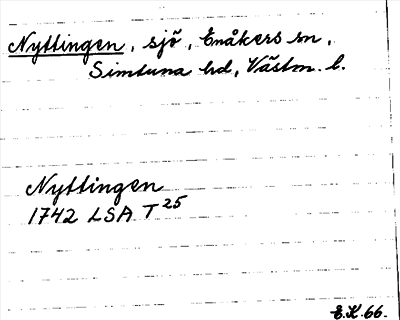 Nyttingen, sjö, Enåkers sn,
Simtuna hd, Västm. l.
Nyttingen
1742 LSA T25
E.K.66.